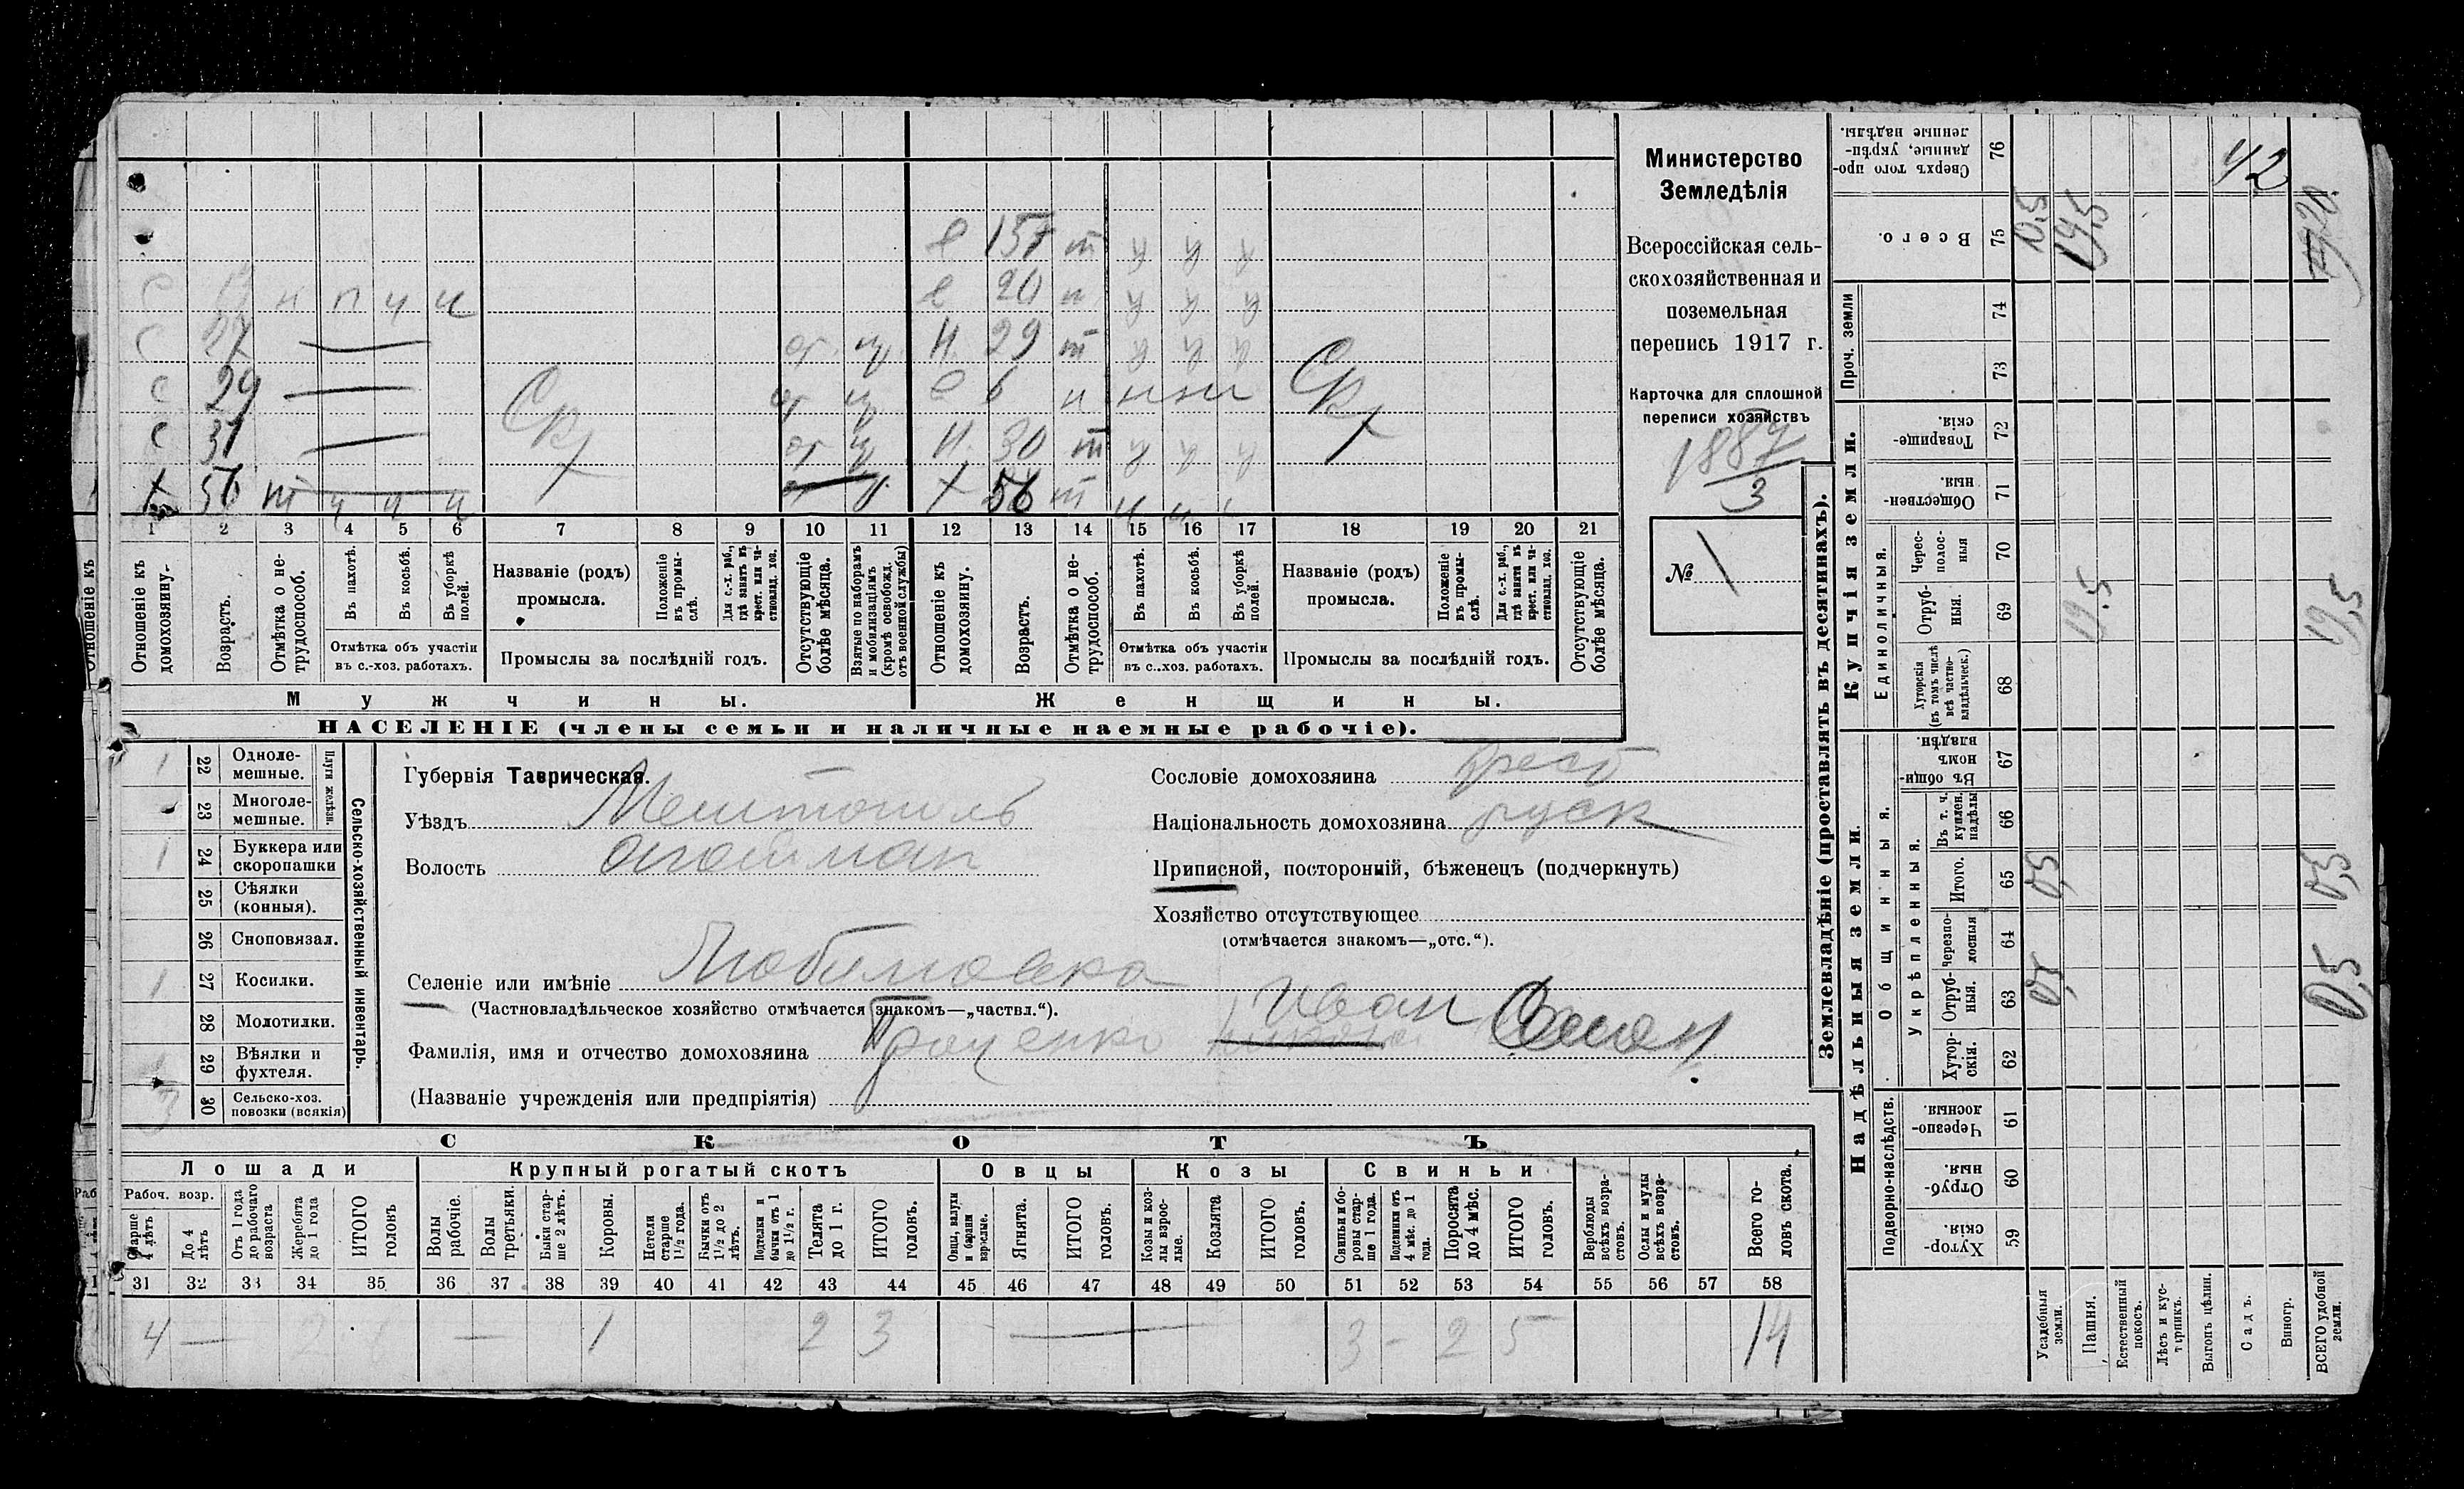 Министерство
Земледѣлія
Всероссійская сель-
скохозяйственная и
поземельная
перепись 1917 г.
Карточка для сплошной
переписи хозяйствъ
1887
3
№ 1
е 157 т ч ч ч
с н п ч и е 20 н ч ч ч
с 27 Н. 29 т ч ч ч
с 29 е 6 н н н н
с 31 Н. 30 т ч ч ч
х 56 т х 56 т
1 2 3 4 5 6 7 8 9 10 11 12 13 14 15 16 17 18 19 20 21
Отношеніе къ домохозяину.
Возрастъ.
Отмѣтка о не-трудоспособ.
Въ пахотѣ.
Въ косьбѣ.
Въ уборкѣ полей.
Отмѣтка объ участіи
въ с.-хоз. работахъ.
Названіе (родъ)
промысла.
Положеніе въ промы-слѣ.
Для с.-х. раб., гдѣ занятъ въ крест. или ча-стновлад. хоз.
Промыслы за послѣдній годъ.
Отсутствующіе болѣе мѣсяца.
Взятые по наборамъ и мобилизаціямъ (кромѣ освобожд. отъ военной службы)
Отношеніе къ домохозяину.
Возрастъ.
Отмѣтка о не-трудоспособ.
Въ пахотѣ.
Въ косьбѣ.
Въ уборкѣ полей.
Отмѣтка объ участіи
въ с..-хоз. работахъ.
Названіе (родъ)
промысла.
Положеніе въ промы-слѣ.
Для с.-х. раб., гдѣ занята въ крест. или ча-стновлад. хоз.
Промыслы за послѣдній годъ.
Отсутствующіе болѣе мѣсяца.
Мужчины. Женщины.
НАСЕЛЕНІЕ (члены семьи и наличные наемные рабочіе).
Сельско-хозяйственный инвентарь.
Плуги желѣзн.
1 22 Одноле-мешные.
23 Многоле-мешные.
1 24 Буккера или скоропашки
25 Сѣялки (конныя).
26 Сноповязал.
1 27 Косилки.
28 Молотилки.
29 Вѣялки и фухтеля.
3 30 Сельско-хоз. повозки (всякія)
Губернія Таврическая.
Уѣздъ
Волость
Селеніе или имѣніе Любимовка
(Частновладѣльческое хозяйство отмѣчается знакомъ—„частвл.“).
Фамилія, имя и отчество домохозяина Проценко Иван
(Названіе учрежденія или предпріятія)
Сословіе домохозяина крест
Національность домохозяина руск
Приписной, посторонній, бѣженецъ (подчеркнуть)
Хозяйство отсутствующее
(отмѣчается знакомъ—„отс.“).
СКОТЪ
Лошади Крупный рогатый скотъ Овцы Козы Свиньи
Рабоч. возр.
Старше 4 лѣтъ
До 4 лѣтъ
Отъ 1 года до рабочаго возраста
Жеребята до 1 года
ИТОГО головъ
Волы рабочіе.
Волы третьяки.
Быки стар-ше 2 лѣтъ.
Коровы.
Нетели старше 1½ года.
Бычки отъ 1½ до 2 лѣтъ.
Подтелки и бычки отъ 1 до 1½ г.
Телята до 1 г.
ИТОГО головъ.
Овцы, валухи и бараны взрослые.
Ягнята.
ИТОГО головъ.
Козы и коз-лы взрос-лые.
Козлята
ИТОГО головъ.
Свиньи и бо-ровы стар-ше 1 года.
Подсвинки отъ 4 мѣс. до 1 года.
Поросята до 4 мѣс.
ИТОГО головъ.
Верблюды всѣхъ возра-стовъ.
Ослы и мулы всѣхъ возра-стовъ.
Всего го-ловъ скота.
31 32 33 34 35 36 37 38 39 40 41 42 43 44 45 46 47 48 49 50 51 52 53 54 55 56 57 58
4 — 2 — 1 2 3 — 3 - 2 5 14
Землевладѣніе (проставлять въ десятинахъ).
Купчія земли.
Надѣльныя земли.
Сверхъ того про-данные, укрѣп-ленные надѣлы. 76 42
Всего. 75 19,5
Проч. земли
74
73
Товарище-скія. 72
Обществен-ныя. 71
Единоличныя.
Черес-полос-ныя 70
Отруб-ныя. 69 19.5 19,5
Хуторскія (въ томъ числѣ всѣ частно-владѣльческ.) 68
Общинныя.
Въ общи-номъ владѣн. 67
Укрѣпленныя.
Въ т. ч. куплен. надѣлы 66
Итого. 65 0,5 0,5
Черезпо-лосныя 64
Отруб-ныя. 63 0,5 0,5
Хутор-скія. 62
Подворно-наслѣдств.
Черезпо-лосныя. 61
Отруб-ныя. 60
Хутор-скія. 59
Усадебныя земли.
Пашня.
Естественный покосъ.
Лѣсъ и кус-тарникъ.
Выгонъ цѣлин.
Садъ.
Виногр.
ВСЕГО удобной земли.